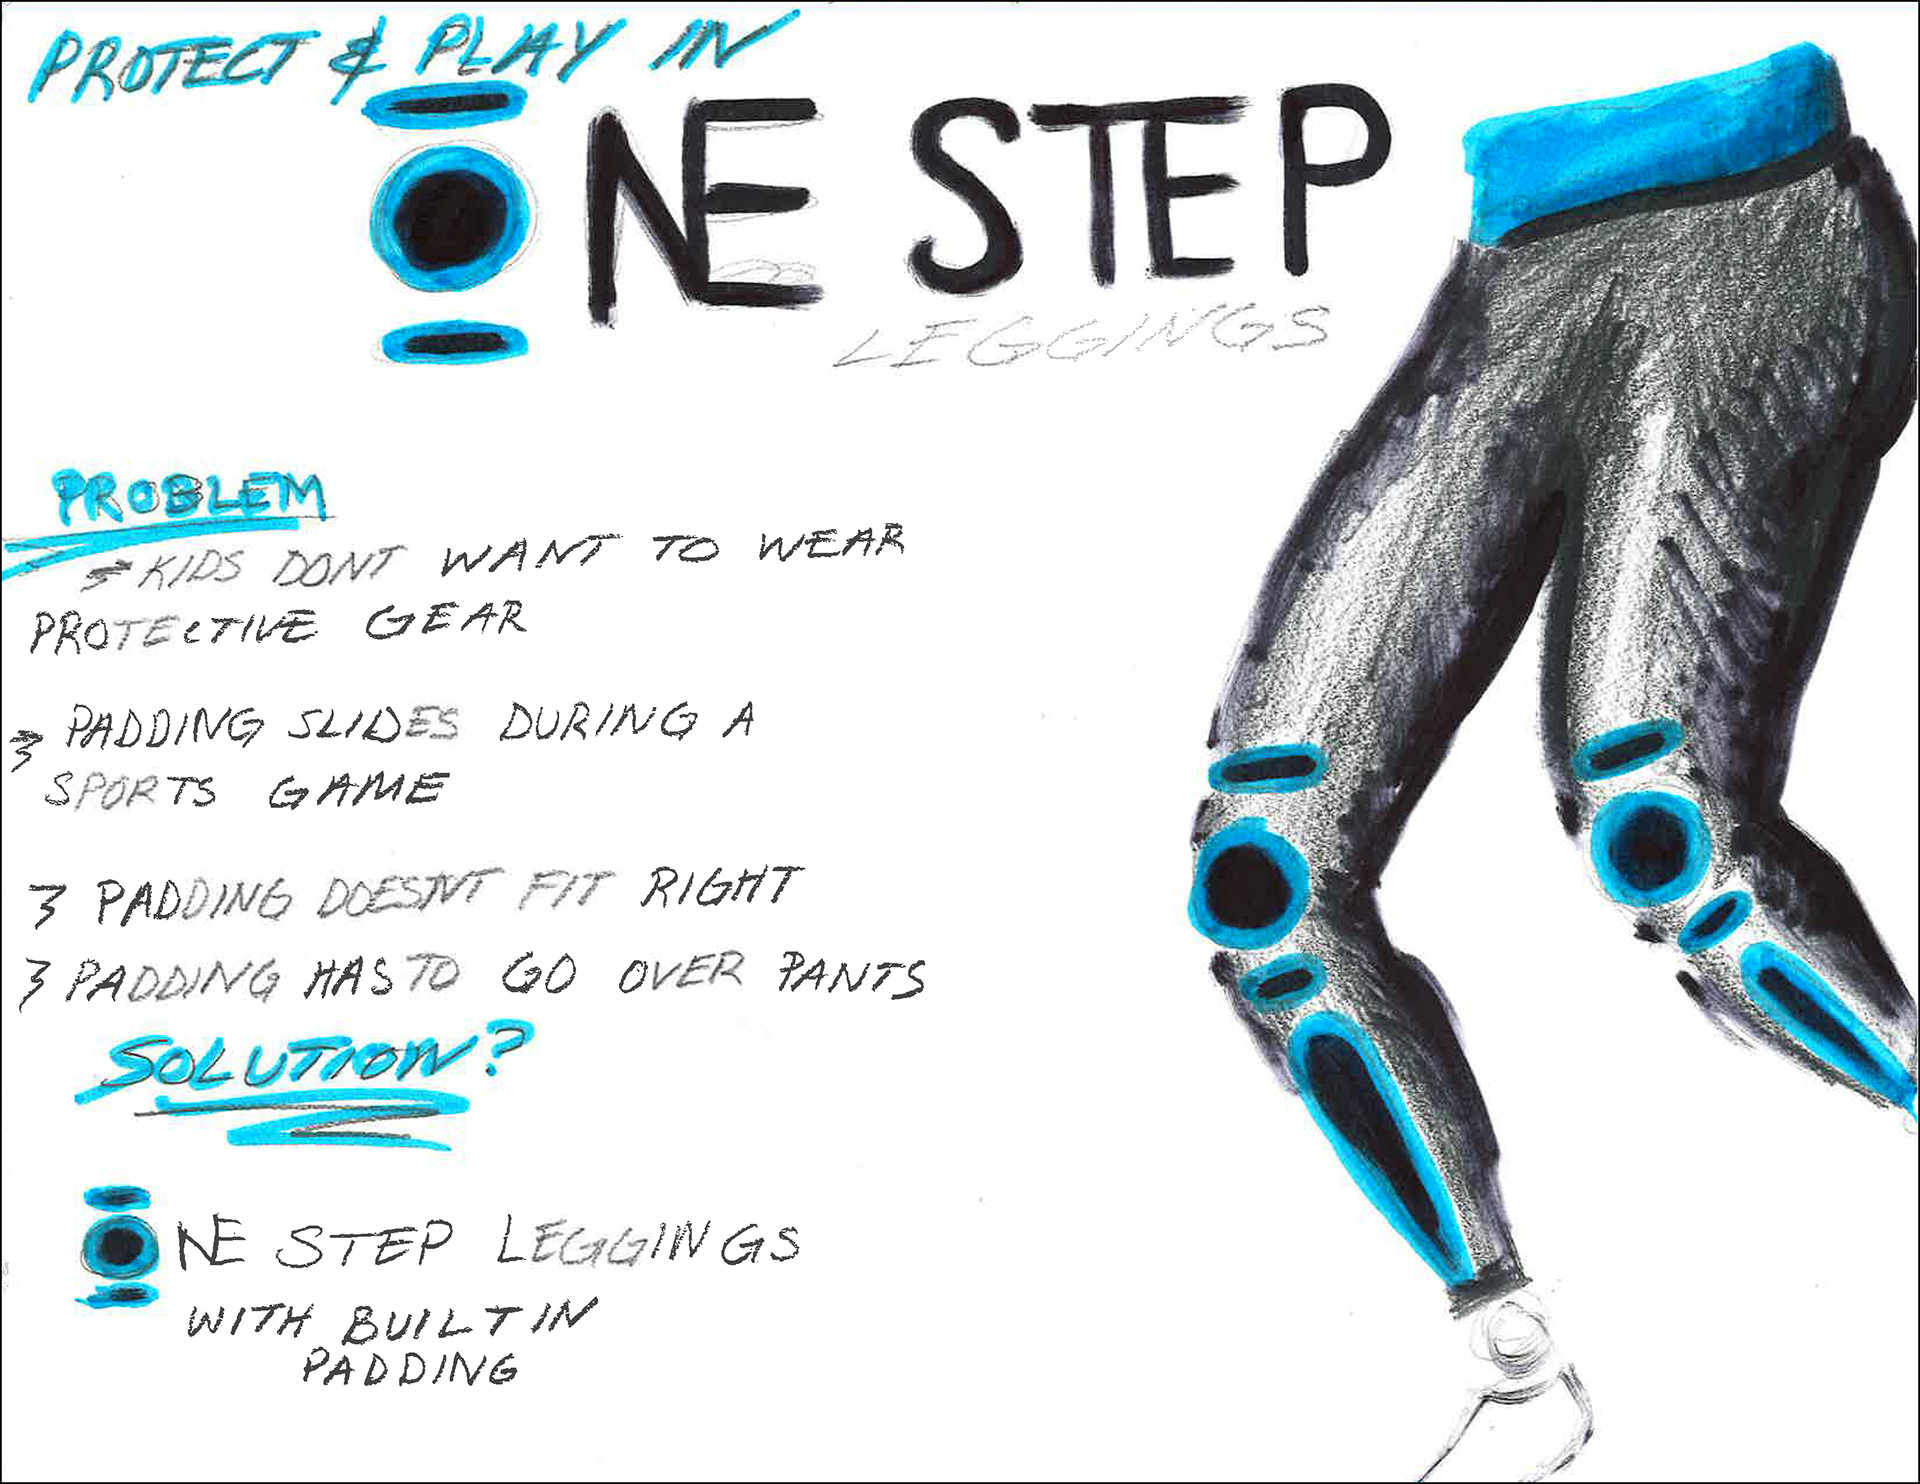 PROTECT & PLAY IN
ONE STEP
LEGGINGS
PROBLEM
KIDS DONT WANT TO WEAR
PROTECTIVE GEAR
PADDING SLIDES DURING A
SPORTS GAME
PADDING DOESNT FIT RIGHT
PADDING HAS TO GO OVER PANTS
SOLUTION?
ONE STEP LEGGINGS
WITH BUILT IN
PADDING